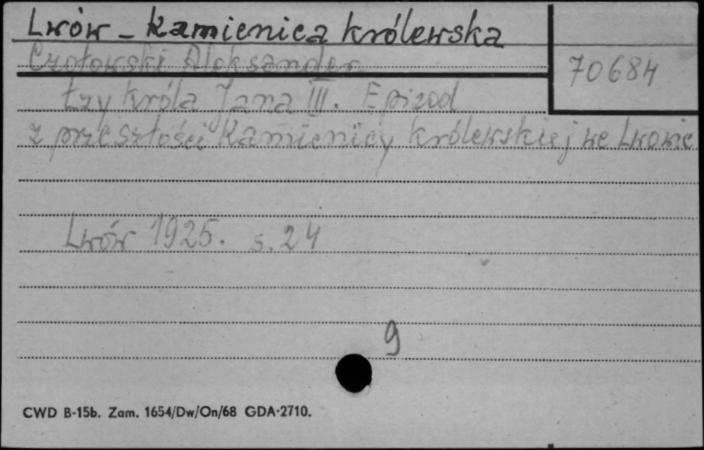 Lwów - Kamienica królewska
Czołowski Aleksander
70684
Łzy króla Jana III. Epizod
z przeszłości Kamienicy królewskiej we Lwowie
Lwów 1925. s. 24
9
CWD B-15b. Zam. 1654/Dw/On/68 GDA-2710.